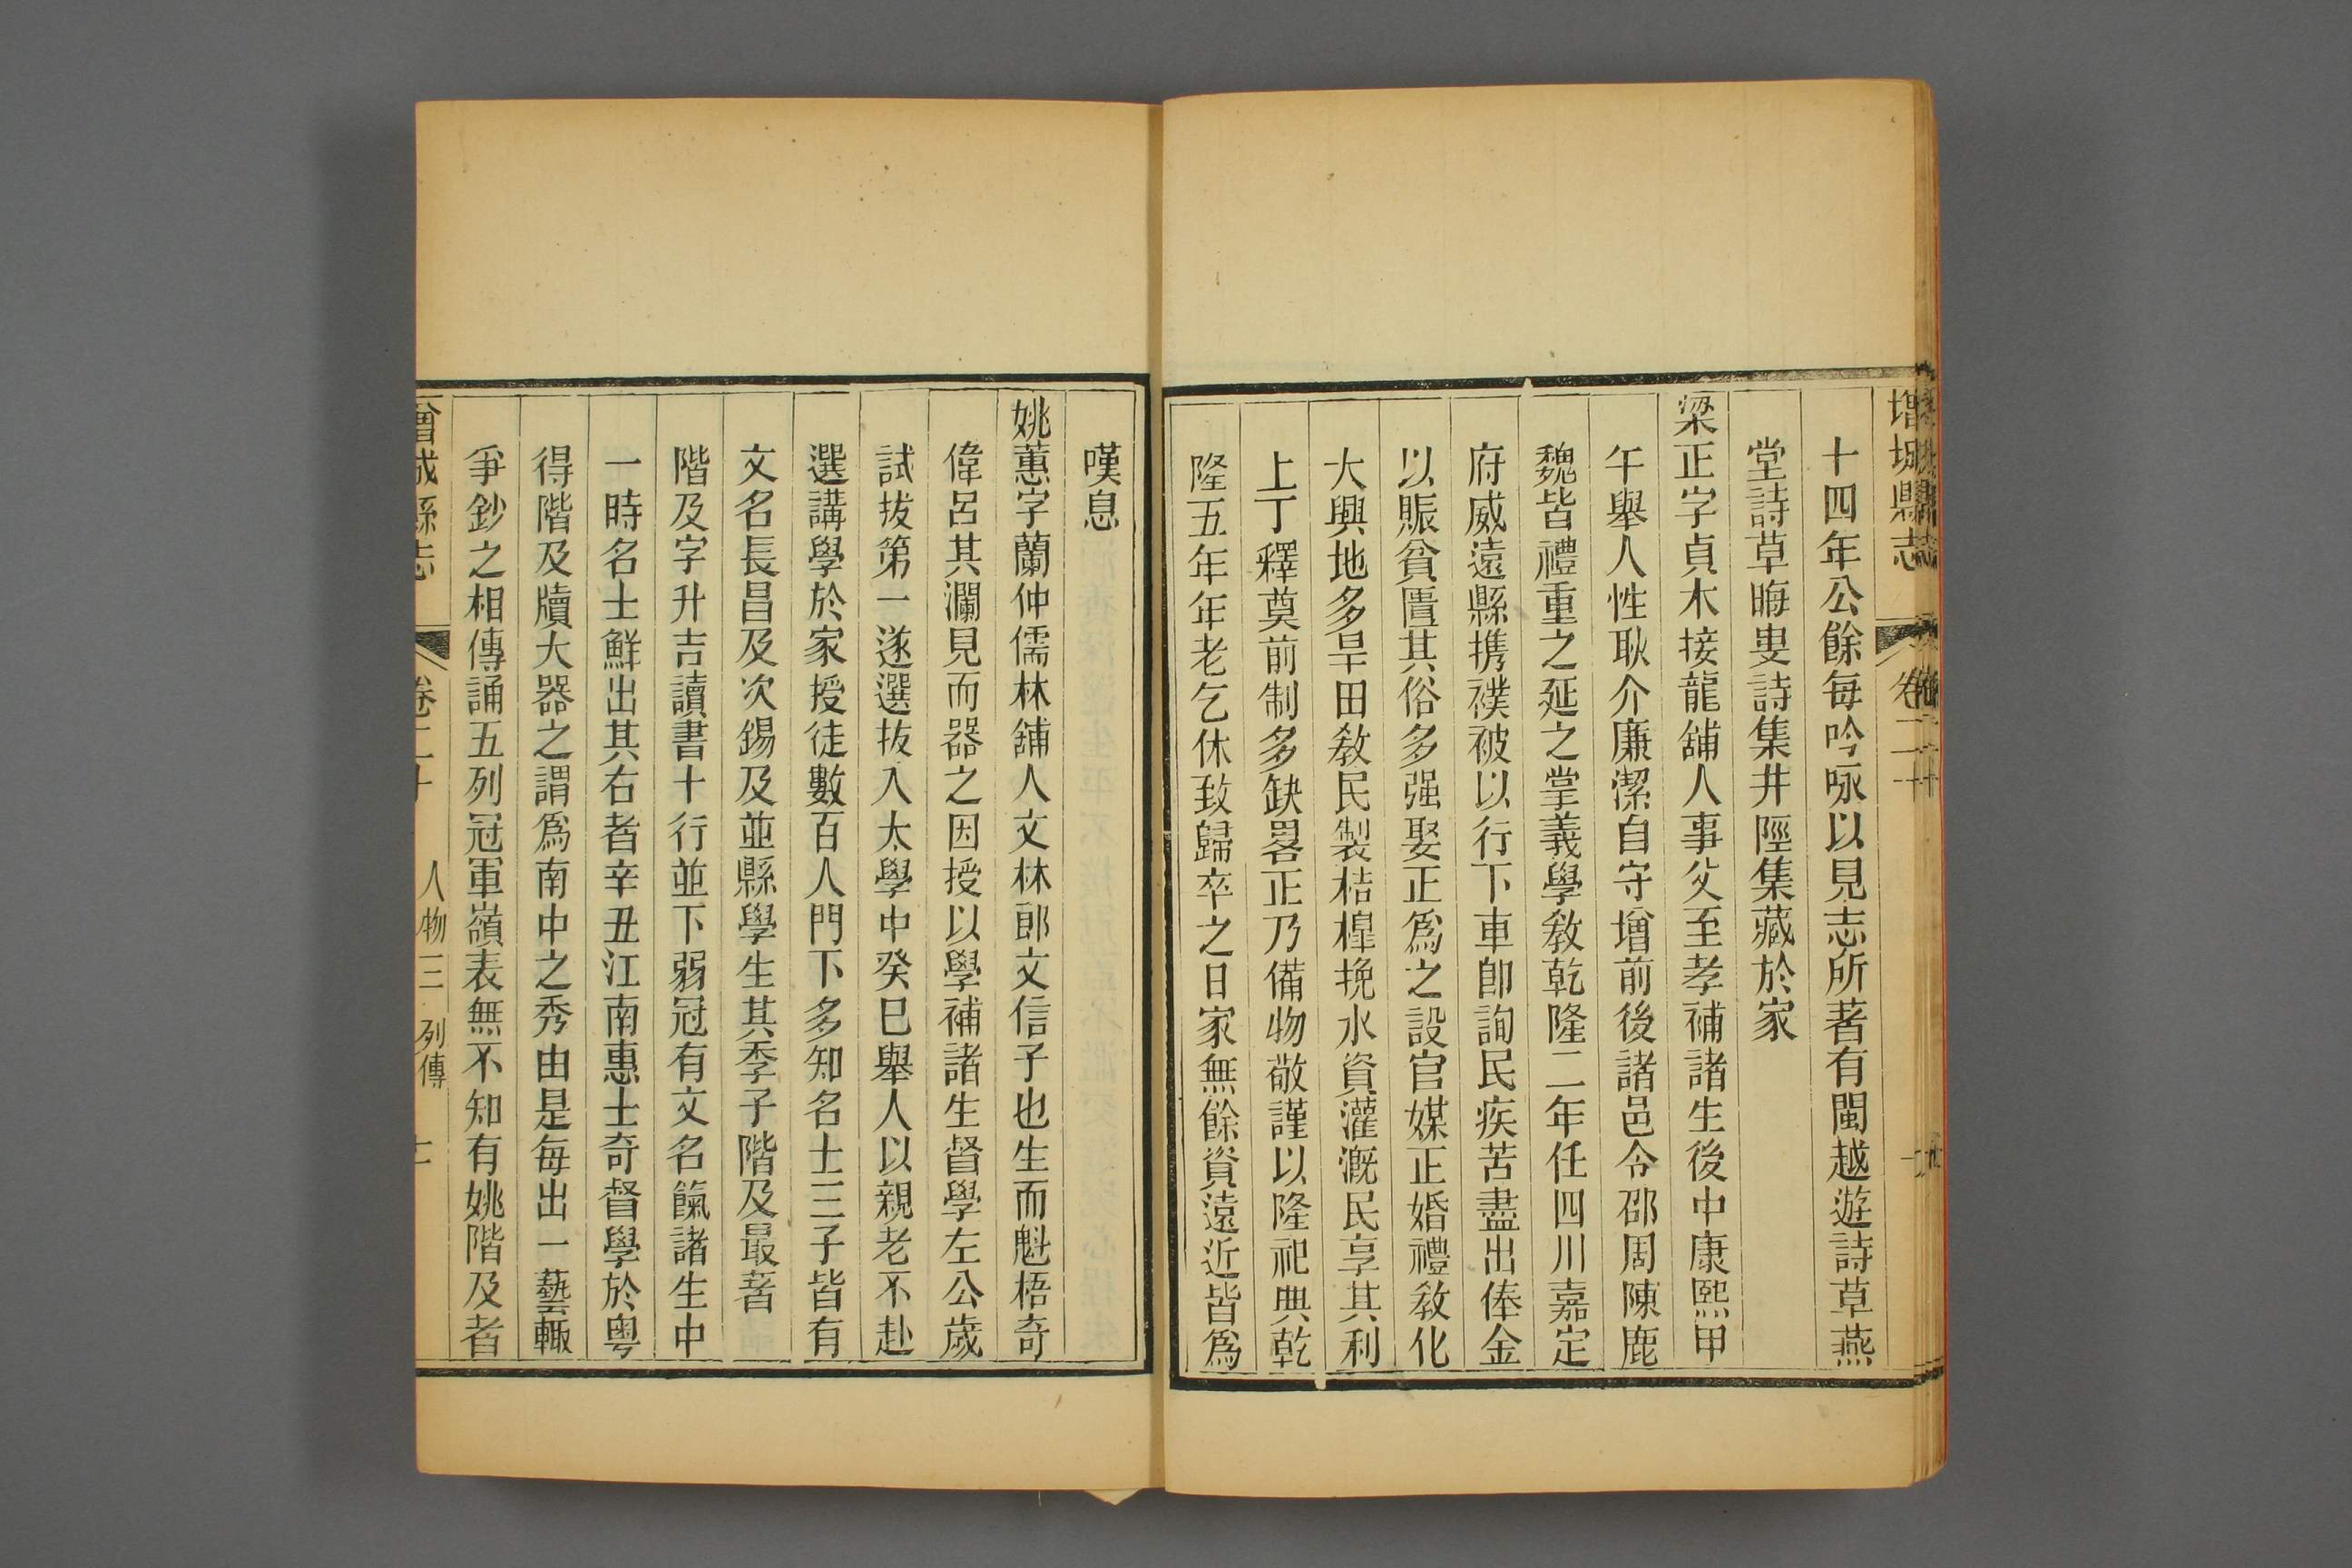 增城縣志 卷二十
十四年公餘每吟咏以見志所著有閩越遊詩草燕
堂詩草晦叟詩集井陘集藏於家
梁正字貞木接龍舖人事父至孝補諸生後中康熙甲
午舉人性耿介廉潔自守增前後諸邑令邵周陳鹿
魏皆禮重之延之掌義學敎乾隆二年任四川嘉定
府威遠縣携襆被以行下車卽詢民疾苦盡出俸金
以賑貧匱其俗多强娶正爲之設官媒正婚禮敎化
大興地多旱田敎民製桔槹挽水資灌漑民享其利
上丁釋奠前制多缺畧正乃備物敬謹以隆祀典乾
隆五年年老乞休致歸卒之日家無餘資遠近皆爲
嘆息
姚蕙字蘭仲儒林舖人文林郎文信子也生而魁梧奇
偉呂其瀾見而器之因授以學補諸生督學左公歲
試拔第一遂選拔入太學中癸巳舉人以親老不赴
選講學於家授徒數百人門下多知名士三子皆有
文名長昌及次錫及並縣學生其季子階及最著
階及字升吉讀書十行並下弱冠有文名餼諸生中
一時名士鮮出其右者辛丑江南惠士奇督學於粤
得階及牘大器之謂爲南中之秀由是每出一藝輙
爭鈔之相傳誦五列冠軍嶺表無不知有姚階及者
增城縣志 卷二十 人物三 列傳